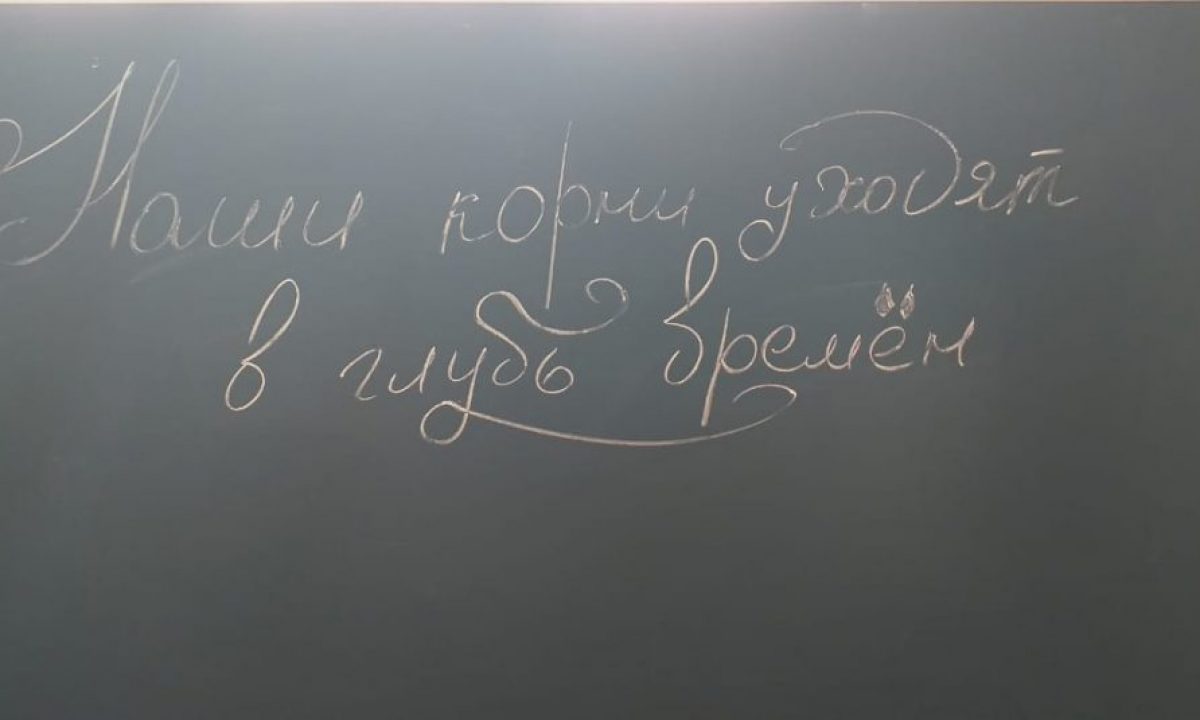 Наши корни уходят
в глубь времён